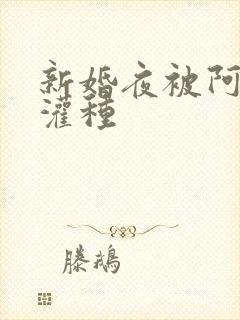 新婚夜被阿
灌種
滕鵝